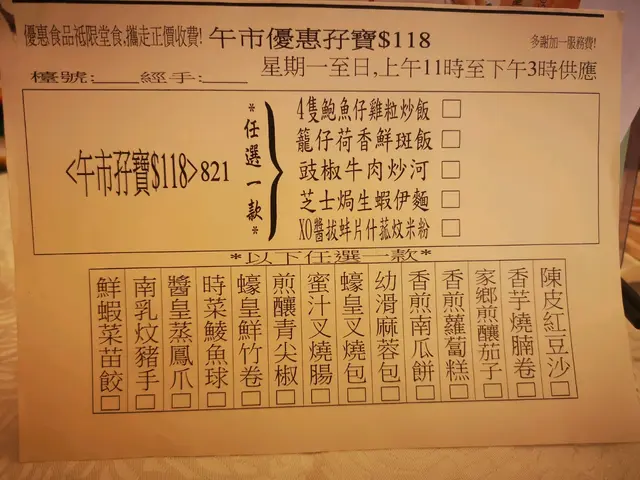 優惠食品衹限堂食,攜走正價收費!
午市優惠孖寶$118
多謝加一服務費!
檯號:____經手:____
星期一至日,上午11時至下午3時供應
<午市孖寶$118>821
*任選一款*
4隻鮑魚仔雞粒炒飯
籠仔荷香鮮斑飯
豉椒牛肉炒河
芝士焗生蝦伊麵
XO醬拔蚌片什菰炆米粉
*以下任選一款*
鮮蝦菜苗餃
南乳炆豬手
醬皇蒸鳳爪
時菜鯪魚球
蠔皇鮮竹卷
煎釀青尖椒
蜜汁叉燒腸
蠔皇叉燒包
幼滑麻蓉包
香煎南瓜餅
香煎蘿蔔糕
家鄉煎釀茄子
香芋燒腩卷
陳皮紅豆沙